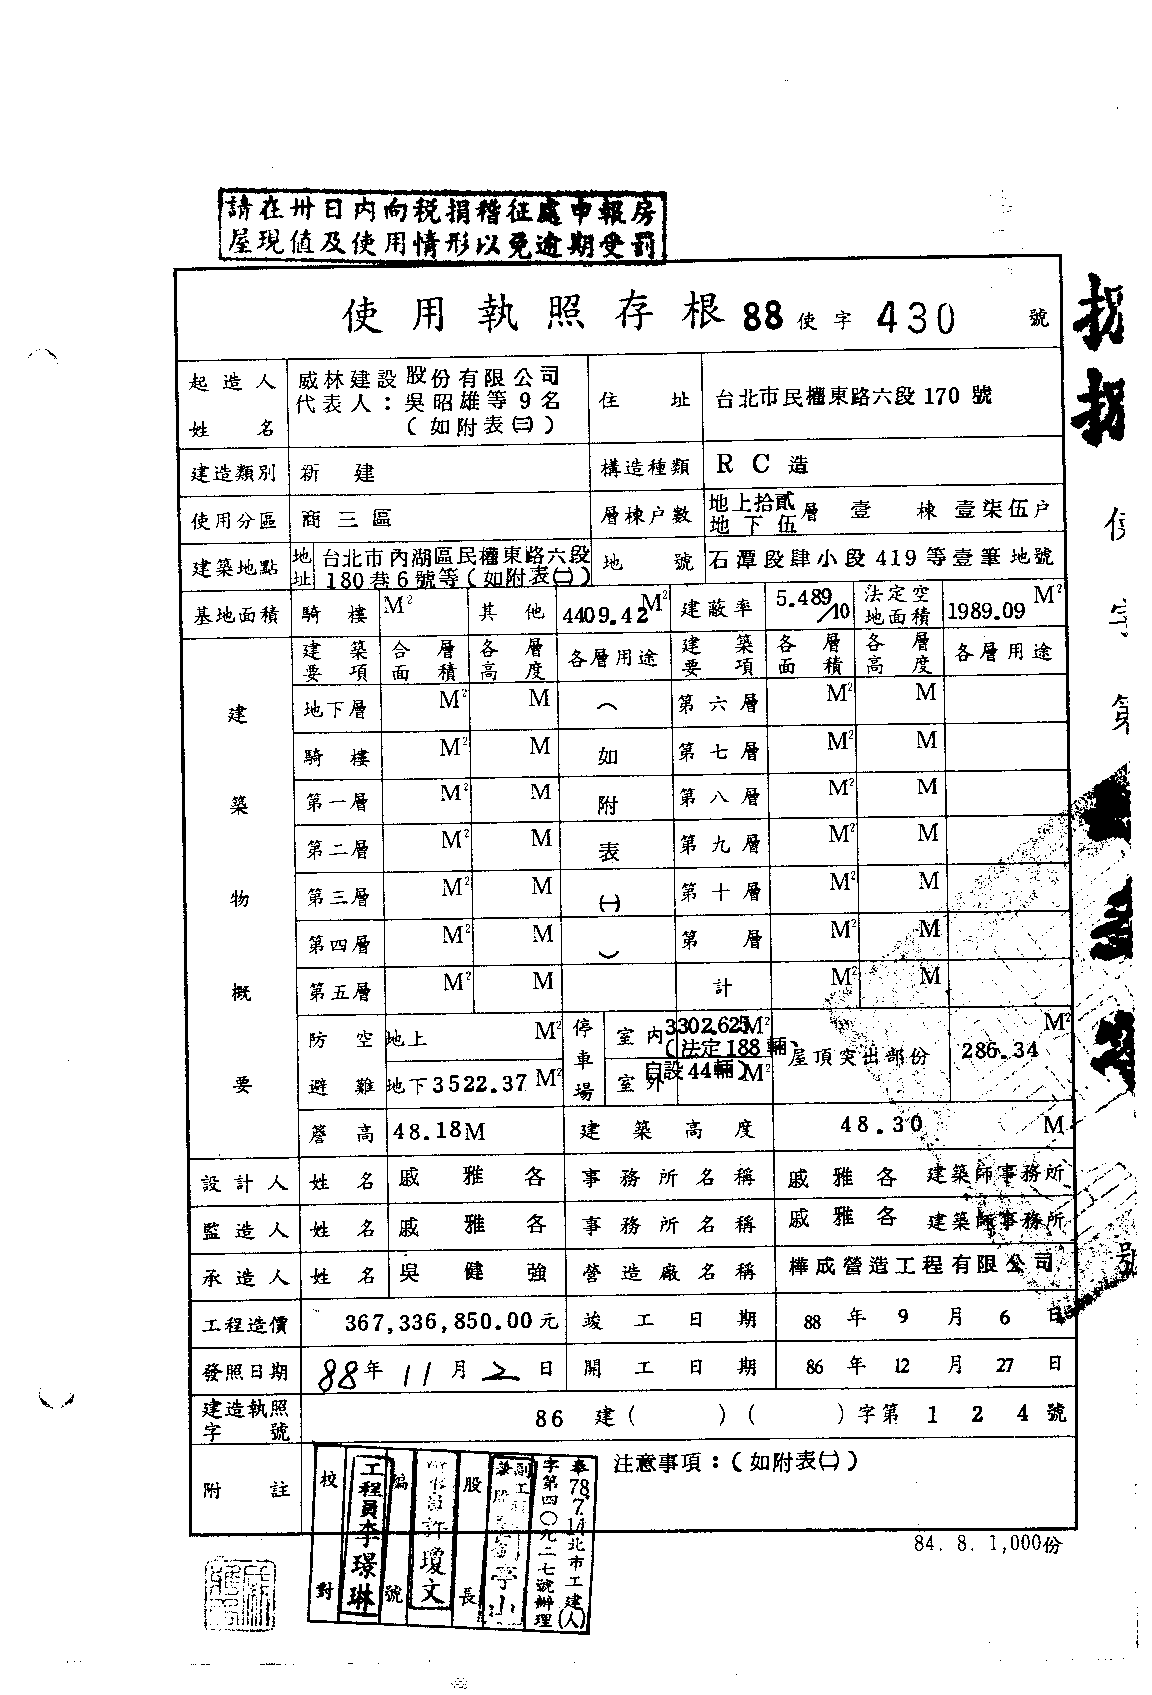 請在卅日內向稅捐稽征處申報房
屋現值及使用情形以免逾期受罰
使用執照存根 88 使字 430 號
起造人姓名 威林建設股份有限公司 代表人：吳昭雄等9名 （如附表㈢） 住址 台北市民權東路六段170號
建造類別 新建 構造種類 RC造
使用分區 商三區 層棟戶數 地上拾貳 地下伍 層 壹 棟 壹柒伍戶
建築地點 地址 台北市內湖區民權東路六段180巷6號等（如附表㈡） 地號 石潭段肆小段419等壹筆地號
基地面積 騎樓 M² 其他 4409.42 M² 建蔽率 5.489/10 法定空地面積 1989.09 M²
建築物概要
建築要項 合層面積 各層高度 各層用途 建築要項 各層面積 各層高度 各層用途
地下層 M² M （ 第六層 M² M
騎樓 M² M 如 第七層 M² M
第一層 M² M 附 第八層 M² M
第二層 M² M 表 第九層 M² M
第三層 M² M ㈠ 第十層 M² M
第四層 M² M ） 第 層 M² M
第五層 M² M 計 M² M
防空避難 地上 M² 停車場 室內 3302.625M² （法定188輛 屋頂突出部份 286.34 M²
地下3522.37 M² 室外 自設44輛） M²
簷高 48.18M 建築高度 48.30 M
設計人 姓名 戚雅各 事務所名稱 戚雅各 建築師事務所
監造人 姓名 戚雅各 事務所名稱 戚雅各 建築師事務所
承造人 姓名 吳健強 營造廠名稱 樺成營造工程有限公司
工程造價 367,336,850.00元 竣工日期 88年9月6日
發照日期 88年11月2日 開工日期 86年12月27日
建造執照字號 86 建（ ）（ ）字第 124 號
附註 注意事項：（如附表㈡）
校對 工程員李璟琳
編號 許瓊文
股長
奉78.7.14北市工建(人)
字第四〇九二七號辦理
84. 8. 1,000份
使字第
號